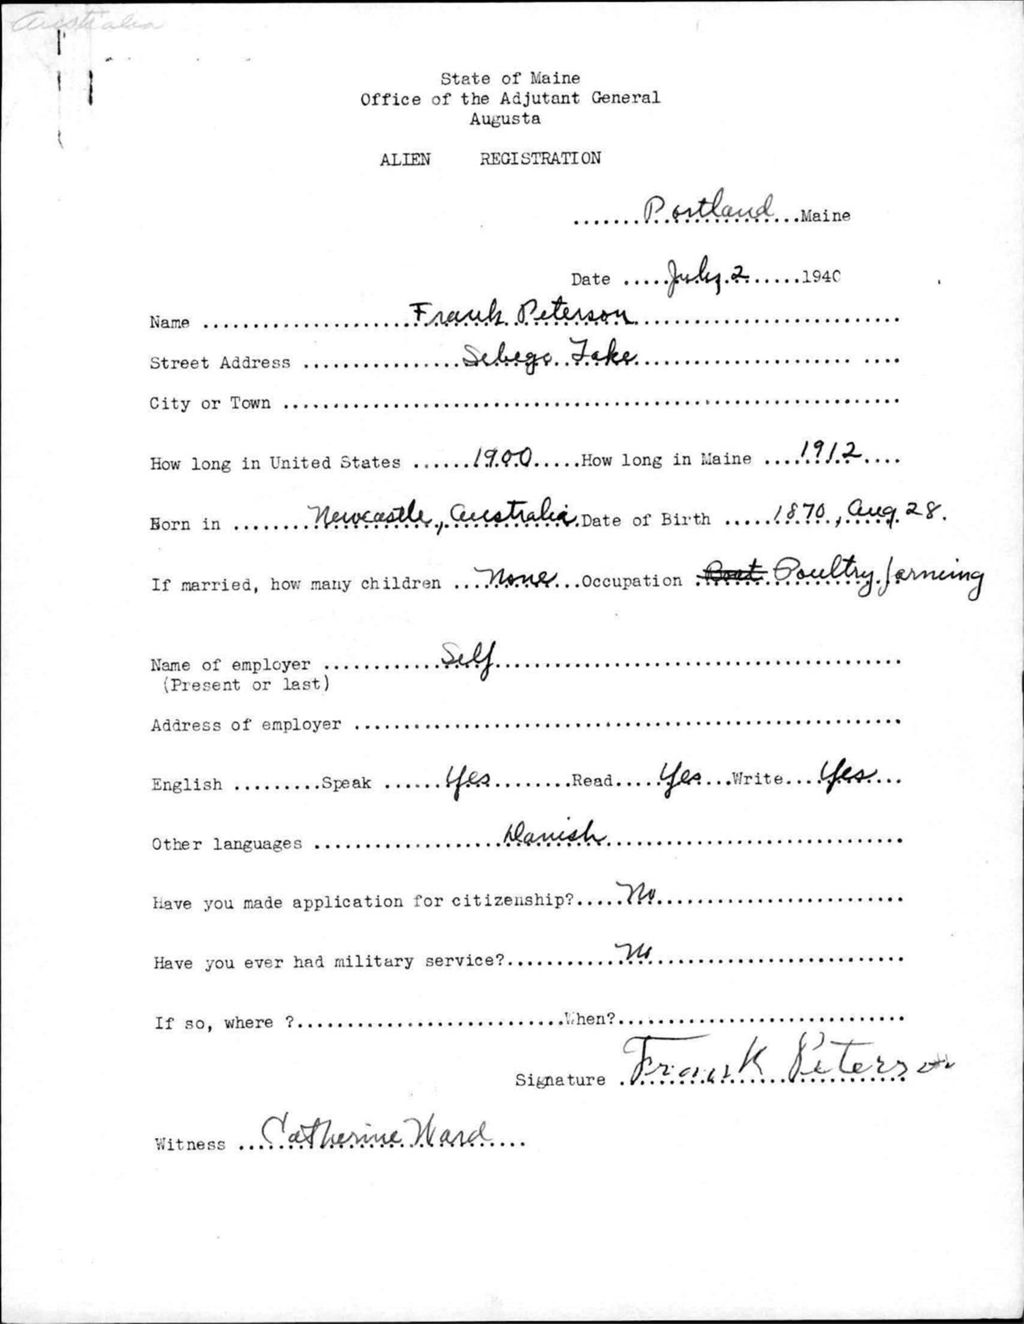 Australia
State of Maine
Office of the Adjutant General
Augusta
ALIEN REGISTRATION
.......Portland...Maine
Date .....July 2......1940
Name .....................Frank Peterson...........................
Street Address ................Sebego Lake....................... ....
City or Town ..............................................................
How long in United States ......1900.....How long in Maine ....1912....
Born in ........Newcastle, Australia.Date of Birth .....1870, Aug. 28.
If married, how many children ...None...Occupation .Poultry farming
Name of employer ............Self.........................................
(Present or last)
Address of employer .......................................................
English .........Speak ......Yes.........Read.....Yes...Write...Yes...
Other languages ...................Danish..............................
Have you made application for citizenship?.....No.........................
Have you ever had military service?............No.........................
If so, where ?...........................When?.............................
Signature .Frank Peterson
Witness ...Catherine Ward....